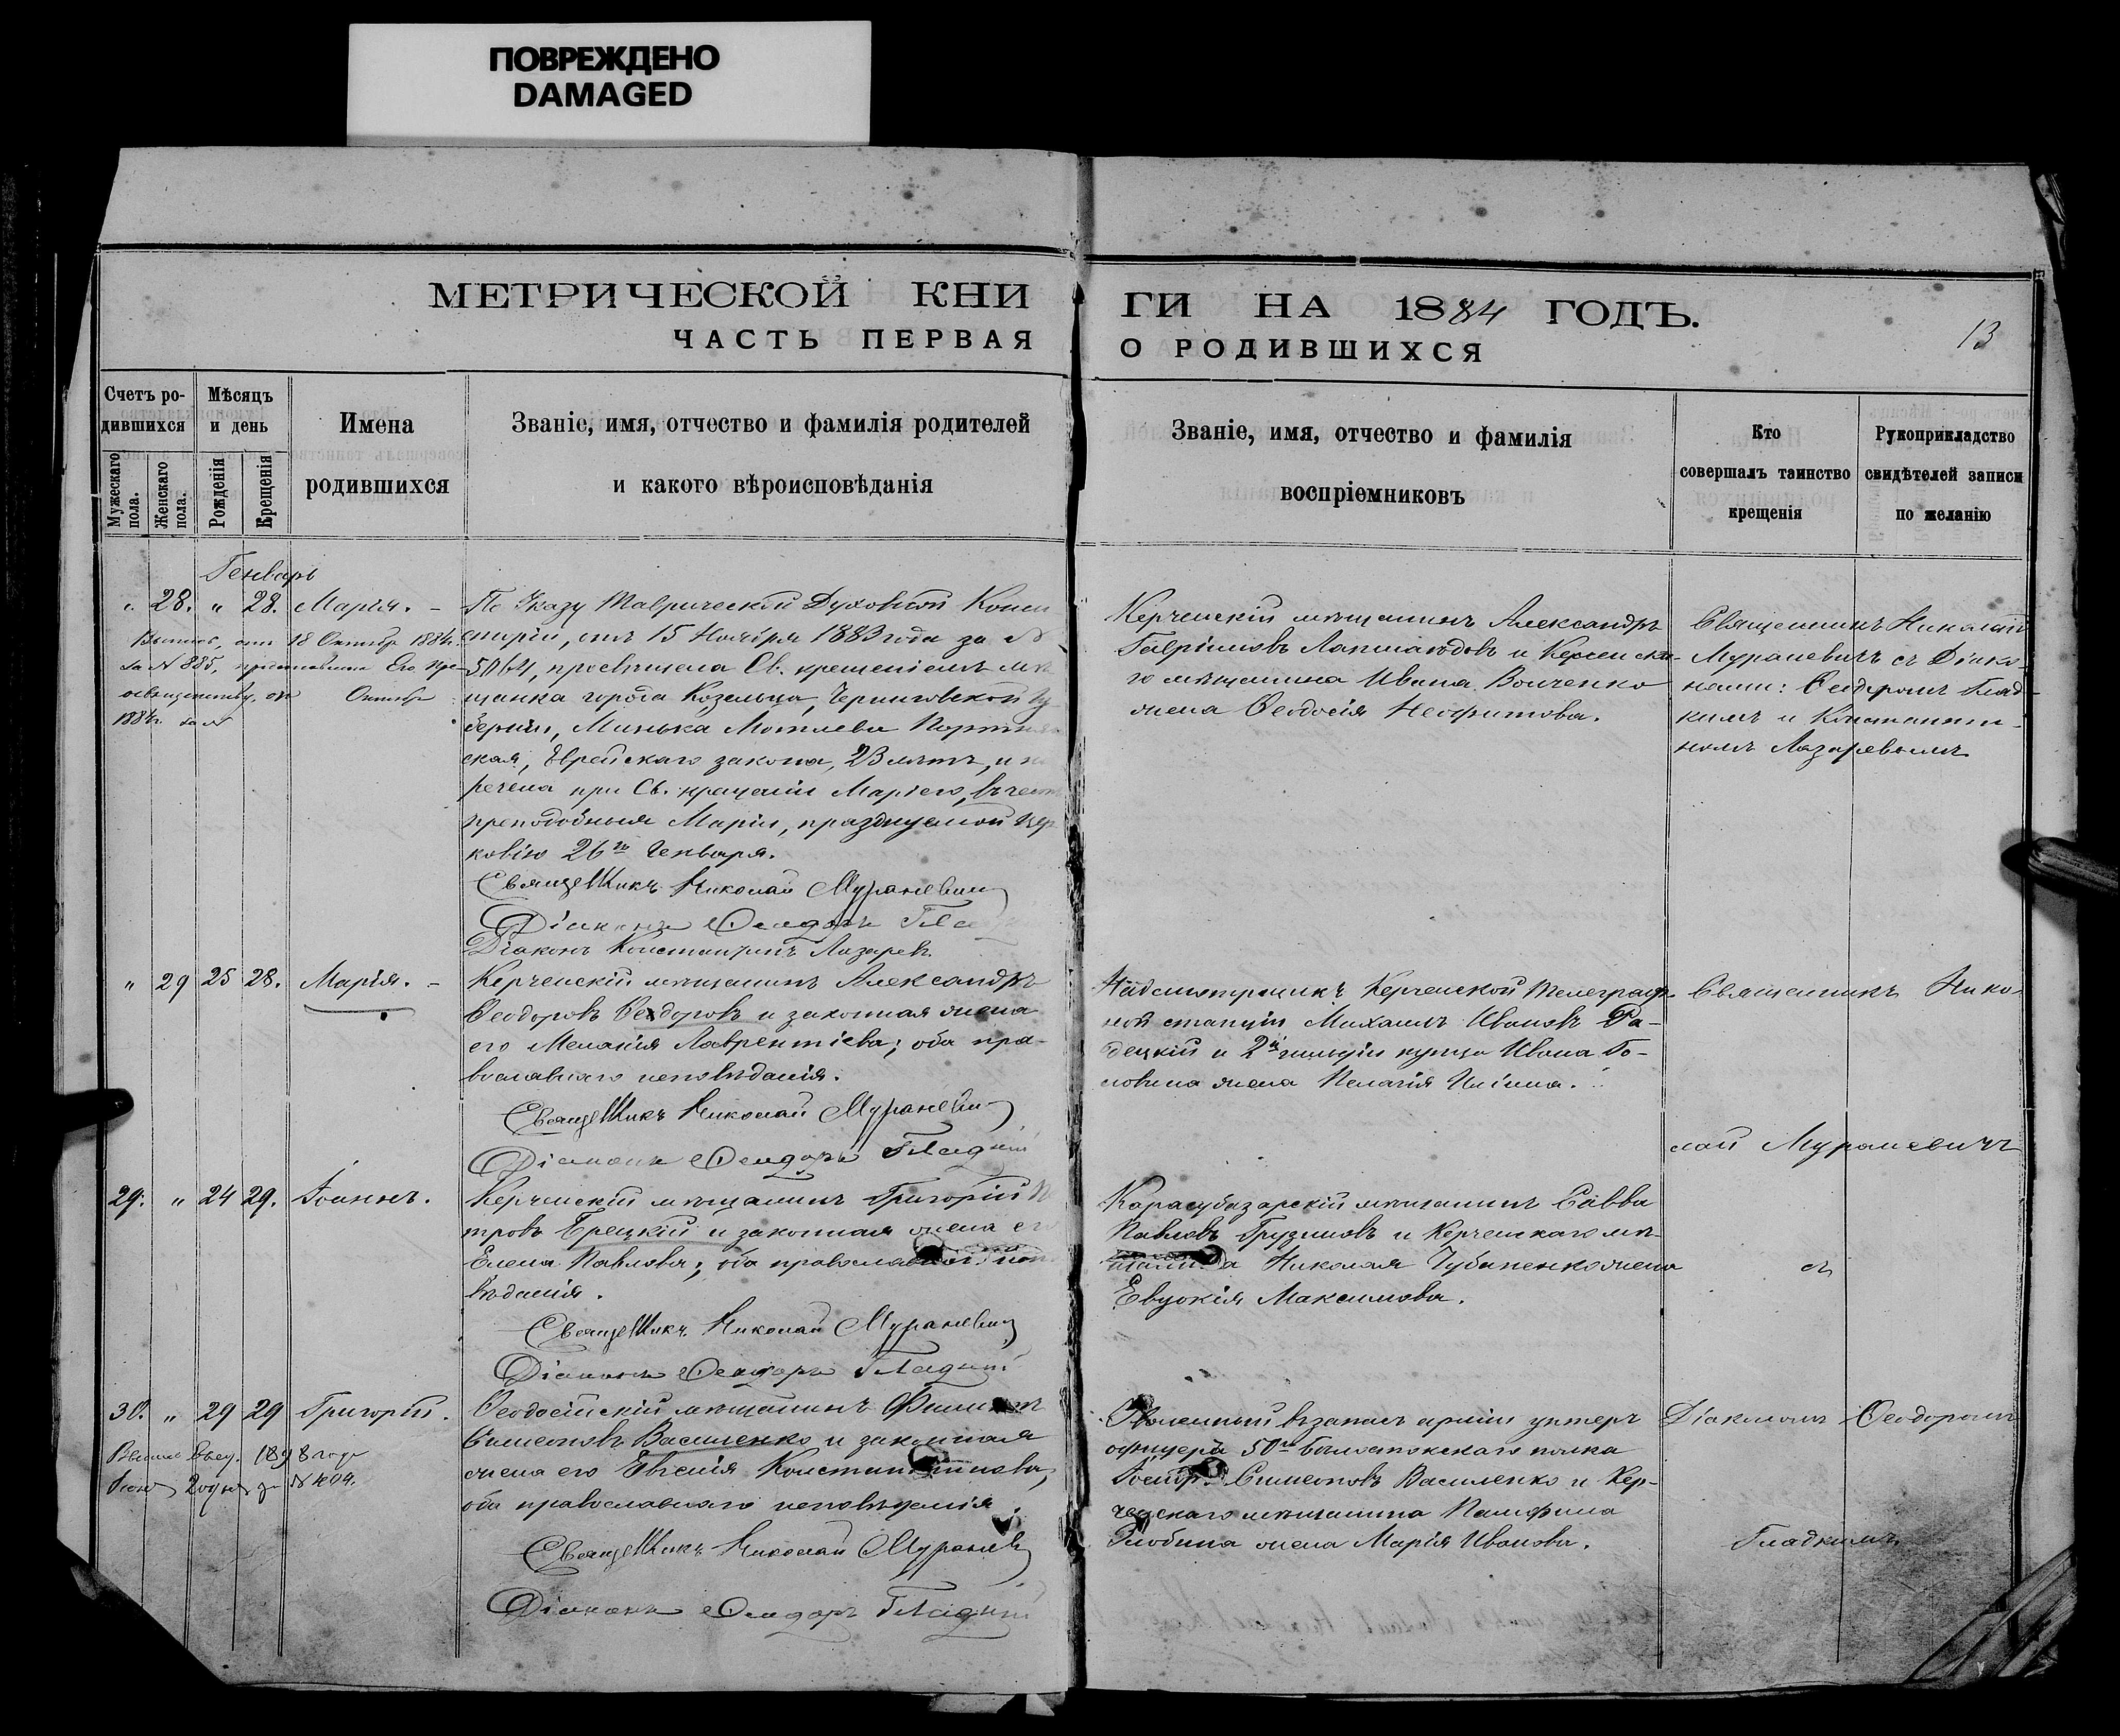 ПОВРЕЖДЕНО
DAMAGED
МЕТРИЧЕСКОЙ КНИ
ГИ НА 1884 ГОДЪ.
ЧАСТЬ ПЕРВАЯ
О РОДИВШИХСЯ
13
Счетъ ро-
дившихся
Мужескаго пола.
Женскаго пола.
Мѣсяцъ
и день
Рожденія
Крещенія
Имена
родившихся
Званіе, имя, отчество и фамилія родителей
и какого вѣроисповѣданія
Званіе, имя, отчество и фамилія
воспріемниковъ
Кто
совершалъ таинство
крещенія
Рукоприкладство
свидѣтелей записи
по желанію
Генварь
" 28. " 28. Марія. –
18 Октября 1884г.
за № 885,
Октября
1884г. за №
По Указу Таврической Духовной Конси
сторіи, отъ 15 Ноября 1883 года за №
5064, просвѣщена Св. крещеніемъ мѣ
щанка города Козельца, Черниговской гу
берніи, Минька Мотлева
ская, Еврейскаго закона, 23 лѣтъ, и на
речена при Св. крещеніи Маріею, въ честь
преподобныя Маріи, празднуемой Цер
ковію 26го Генваря.
Священникъ Николай Мураневич
Діаконъ Феодоръ Гла
Діаконъ Константинъ Лазаревъ
Керченскій мѣщанинъ Александръ
Гавріиловъ и Керченска-
го мѣщанина Ивана Волченко
жена Феодосія Неофитова.
Священникъ Николай
Мураневичъ съ Діако-
нами: Феодоромъ Глад-
кимъ и Константи-
номъ Лазаревымъ
" 29 25 28. Марія. –
Керченскій мѣщанинъ Александръ
Феодоровъ Феодоровъ и законная жена
его Меланія Лаврентіева; оба пра-
вославнаго исповѣданія.
Священникъ Николай Мураневич
Діаконъ Феодоръ Гладкий
Надсмотрщикъ Керченской Телеграф-
ной станціи Михаилъ Ивановъ Ра-
децкій и 2й гильдіи купца Ивана Го-
ловина жена Пелагія Ильина.
Священникъ Нико-
лай Мураневичъ
29. " 24 29. Іоаннъ.
Керченскій мѣщанинъ Григорій Пе
тровъ Грецкій и законная жена его
Елена Павлова; оба православнаго испо
вѣданія.
Священникъ Николай Мураневич
Діаконъ Феодоръ Гладкий
Карасубазарскій мѣщанинъ Савва
Павловъ Грузиновъ и Керченскаго мѣ-
щанина Николая Чубаненко жена
Евдокія Максимова.
съ
30. " 29 29 Григорій.
1898 года
№ 404.
Феодосійскій мѣщанинъ Филиппъ
Симеоновъ Василенко и законная
жена его Евгенія Константинова,
оба православнаго исповѣданія.
Священникъ Николай Муранев
Діаконъ Феодоръ Гладкий
Уволенный въ запасъ арміи унтеръ
офицеръ 50го Бѣлостокскаго полка
Симеоновъ Василенко и Кер-
ченскаго мѣщанина Памфила
Злобина жена Марія Иванова.
Діакономъ Феодоромъ
Гладкимъ